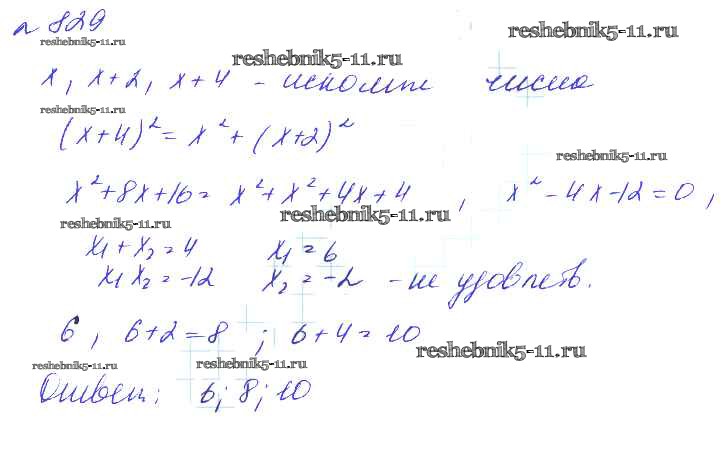 № 829
reshebnik5-11.ru
reshebnik5-11.ru reshebnik5-11.ru
x, x+2, x+4 - искомые числа
reshebnik5-11.ru
(x+4)² = x² + (x+2)²
reshebnik5-11.ru
x²+8x+16 = x²+x²+4x+4, x²-4x-12=0,
reshebnik5-11.ru
reshebnik5-11.ru
x₁+x₂=4 x₁=6
x₁x₂=-12 x₂=-2 - не удовлетв.
6, 6+2=8; 6+4=10
reshebnik5-11.ru
reshebnik5-11.ru reshebnik5-11.ru
Ответ: 6; 8; 10